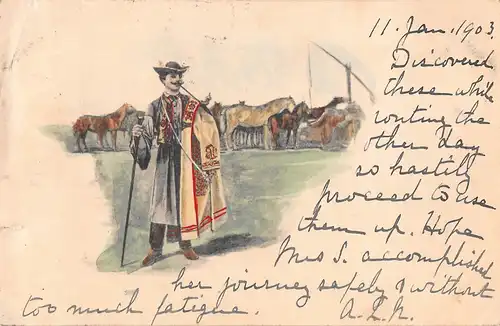 11. Jan. 1903.
Discovered
these while
routing the
other day
so hastily
proceed to use
them up. Hope
Mrs S. accomplished
her journey safely & without
too much fatigue. A.L.N.